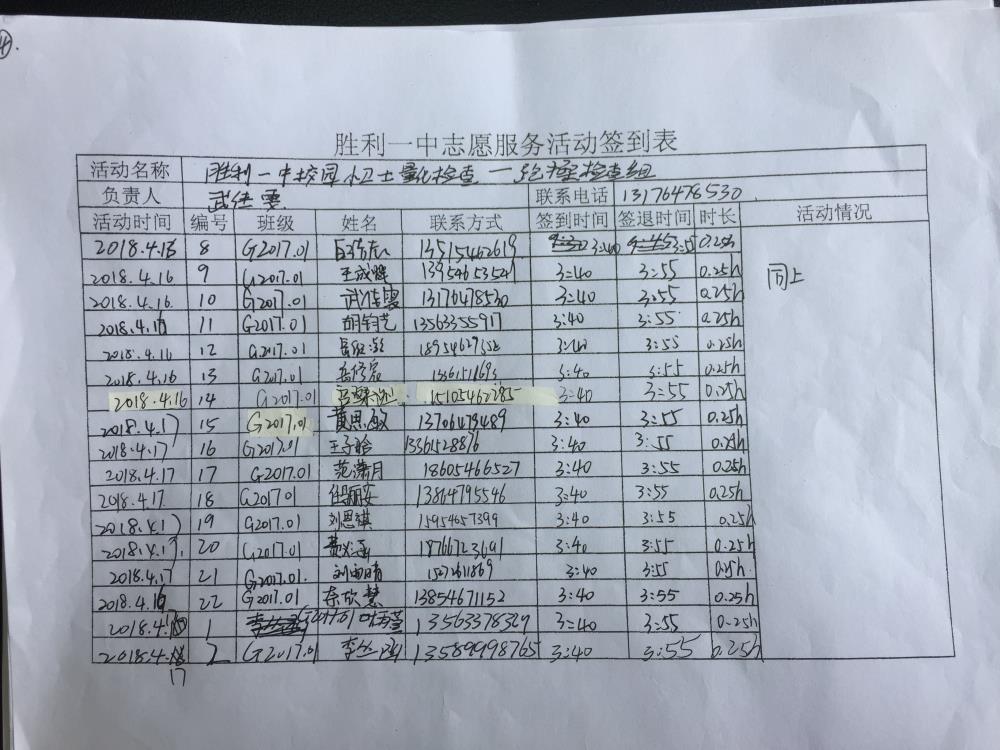 4.
胜利一中志愿服务活动签到表
活动名称 胜利一中校园小卫士量化检查一纪检检查组
负责人 武佳雯 联系电话 13176478530
活动时间 编号 班级 姓名 联系方式 签到时间 签退时间 时长 活动情况
2018.4.16 8 G2017.01 13515462619 3:40 3:55 0.25h
2018.4.16 9 G2017.01 3:40 3:55 0.25h 同上
2018.4.16 10 G2017.01 武佳雯 13176478530 3:40 3:55 0.25h
2018.4.16 11 G2017.01 胡钧艺 13563355917 3:40 3:55 0.25h
2018.4.16 12 G2017.01 18954629352 3:40 3:55 0.25h
2018.4.16 13 G2017.01 3:40 3:55 0.25h
2018.4.16 14 G2017.01 15105462285 3:40 3:55 0.25h
2018.4.17 15 G2017.01 黄思敏 13706473489 3:40 3:55 0.25h
2018.4.17 16 G2017.01 王子晗 3:40 3:55 0.25h
2018.4.17 17 G2017.01 范潇月 18605466527 3:40 3:55 0.25h
2018.4.17 18 G2017.01 13864795546 3:40 3:55 0.25h
2018.4.17 19 G2017.01 刘思祺 15954657399 3:40 3:55 0.25h
2018.4.17. 20 G2017.01 18766723691 3:40 3:55 0.25h
2018.4.17 21 G2017.01. 3:40 3:55 0.25h
2018.4.16 22 G2017.01 秦欣慧 13854671152 3:40 3:55 0.25h
1 G2017.01 13563378329 3:40 3:55 0.25h
2018.4. 2 G2017.01 李丛函 13589998765 3:40 3:55 0.25h
17